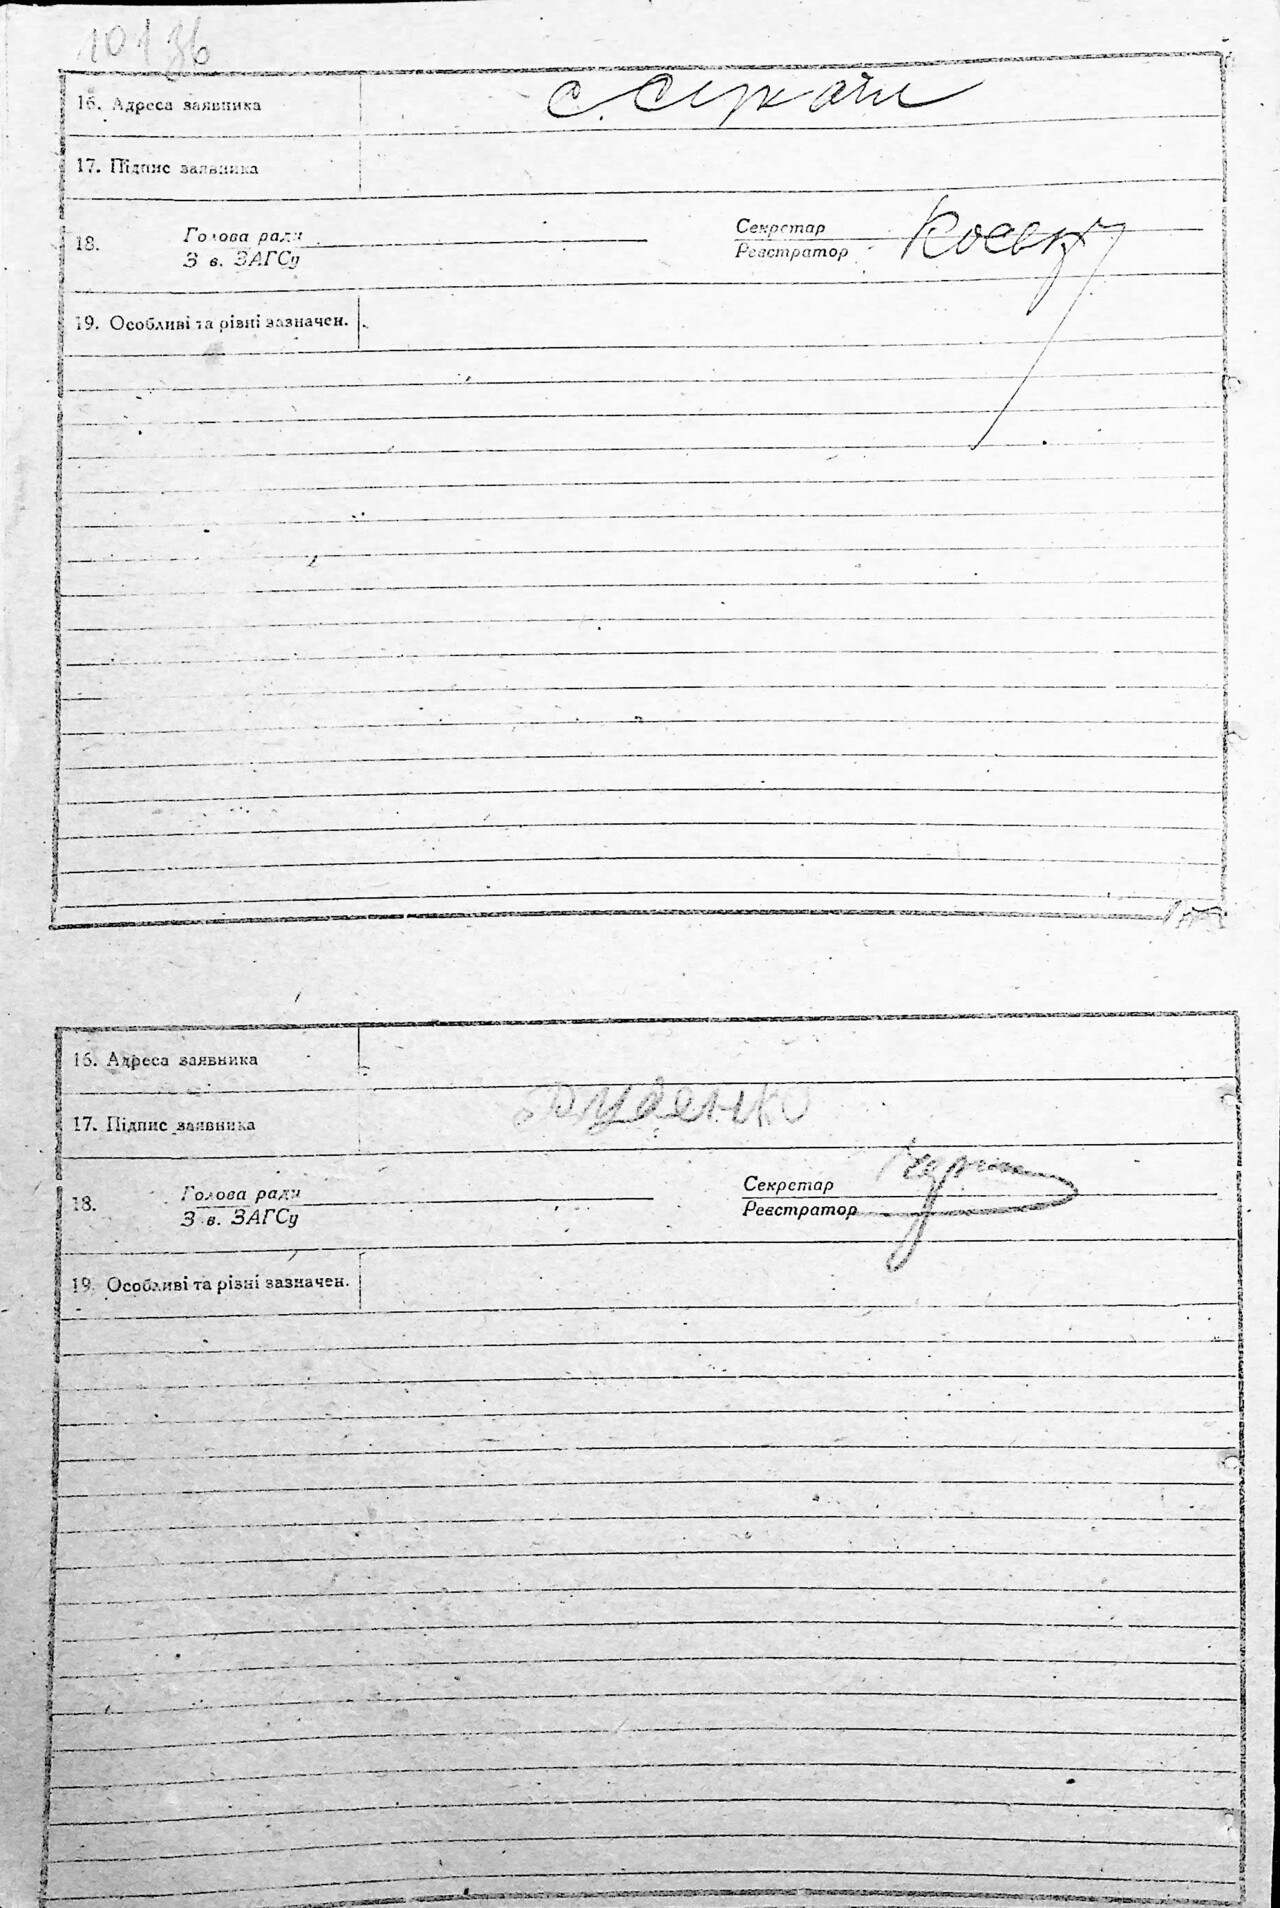 101зв
16. Адреса заявника
17. Підпис заявника
18. Голова ради
З в. ЗАГСу
Секретар
Реєстратор
19. Особливі та різні зазначен.
16. Адреса заявника
17. Підпис заявника Руденко
18. Голова ради
З в. ЗАГСу
Секретар
Реєстратор
19. Особливі та різні зазначен.